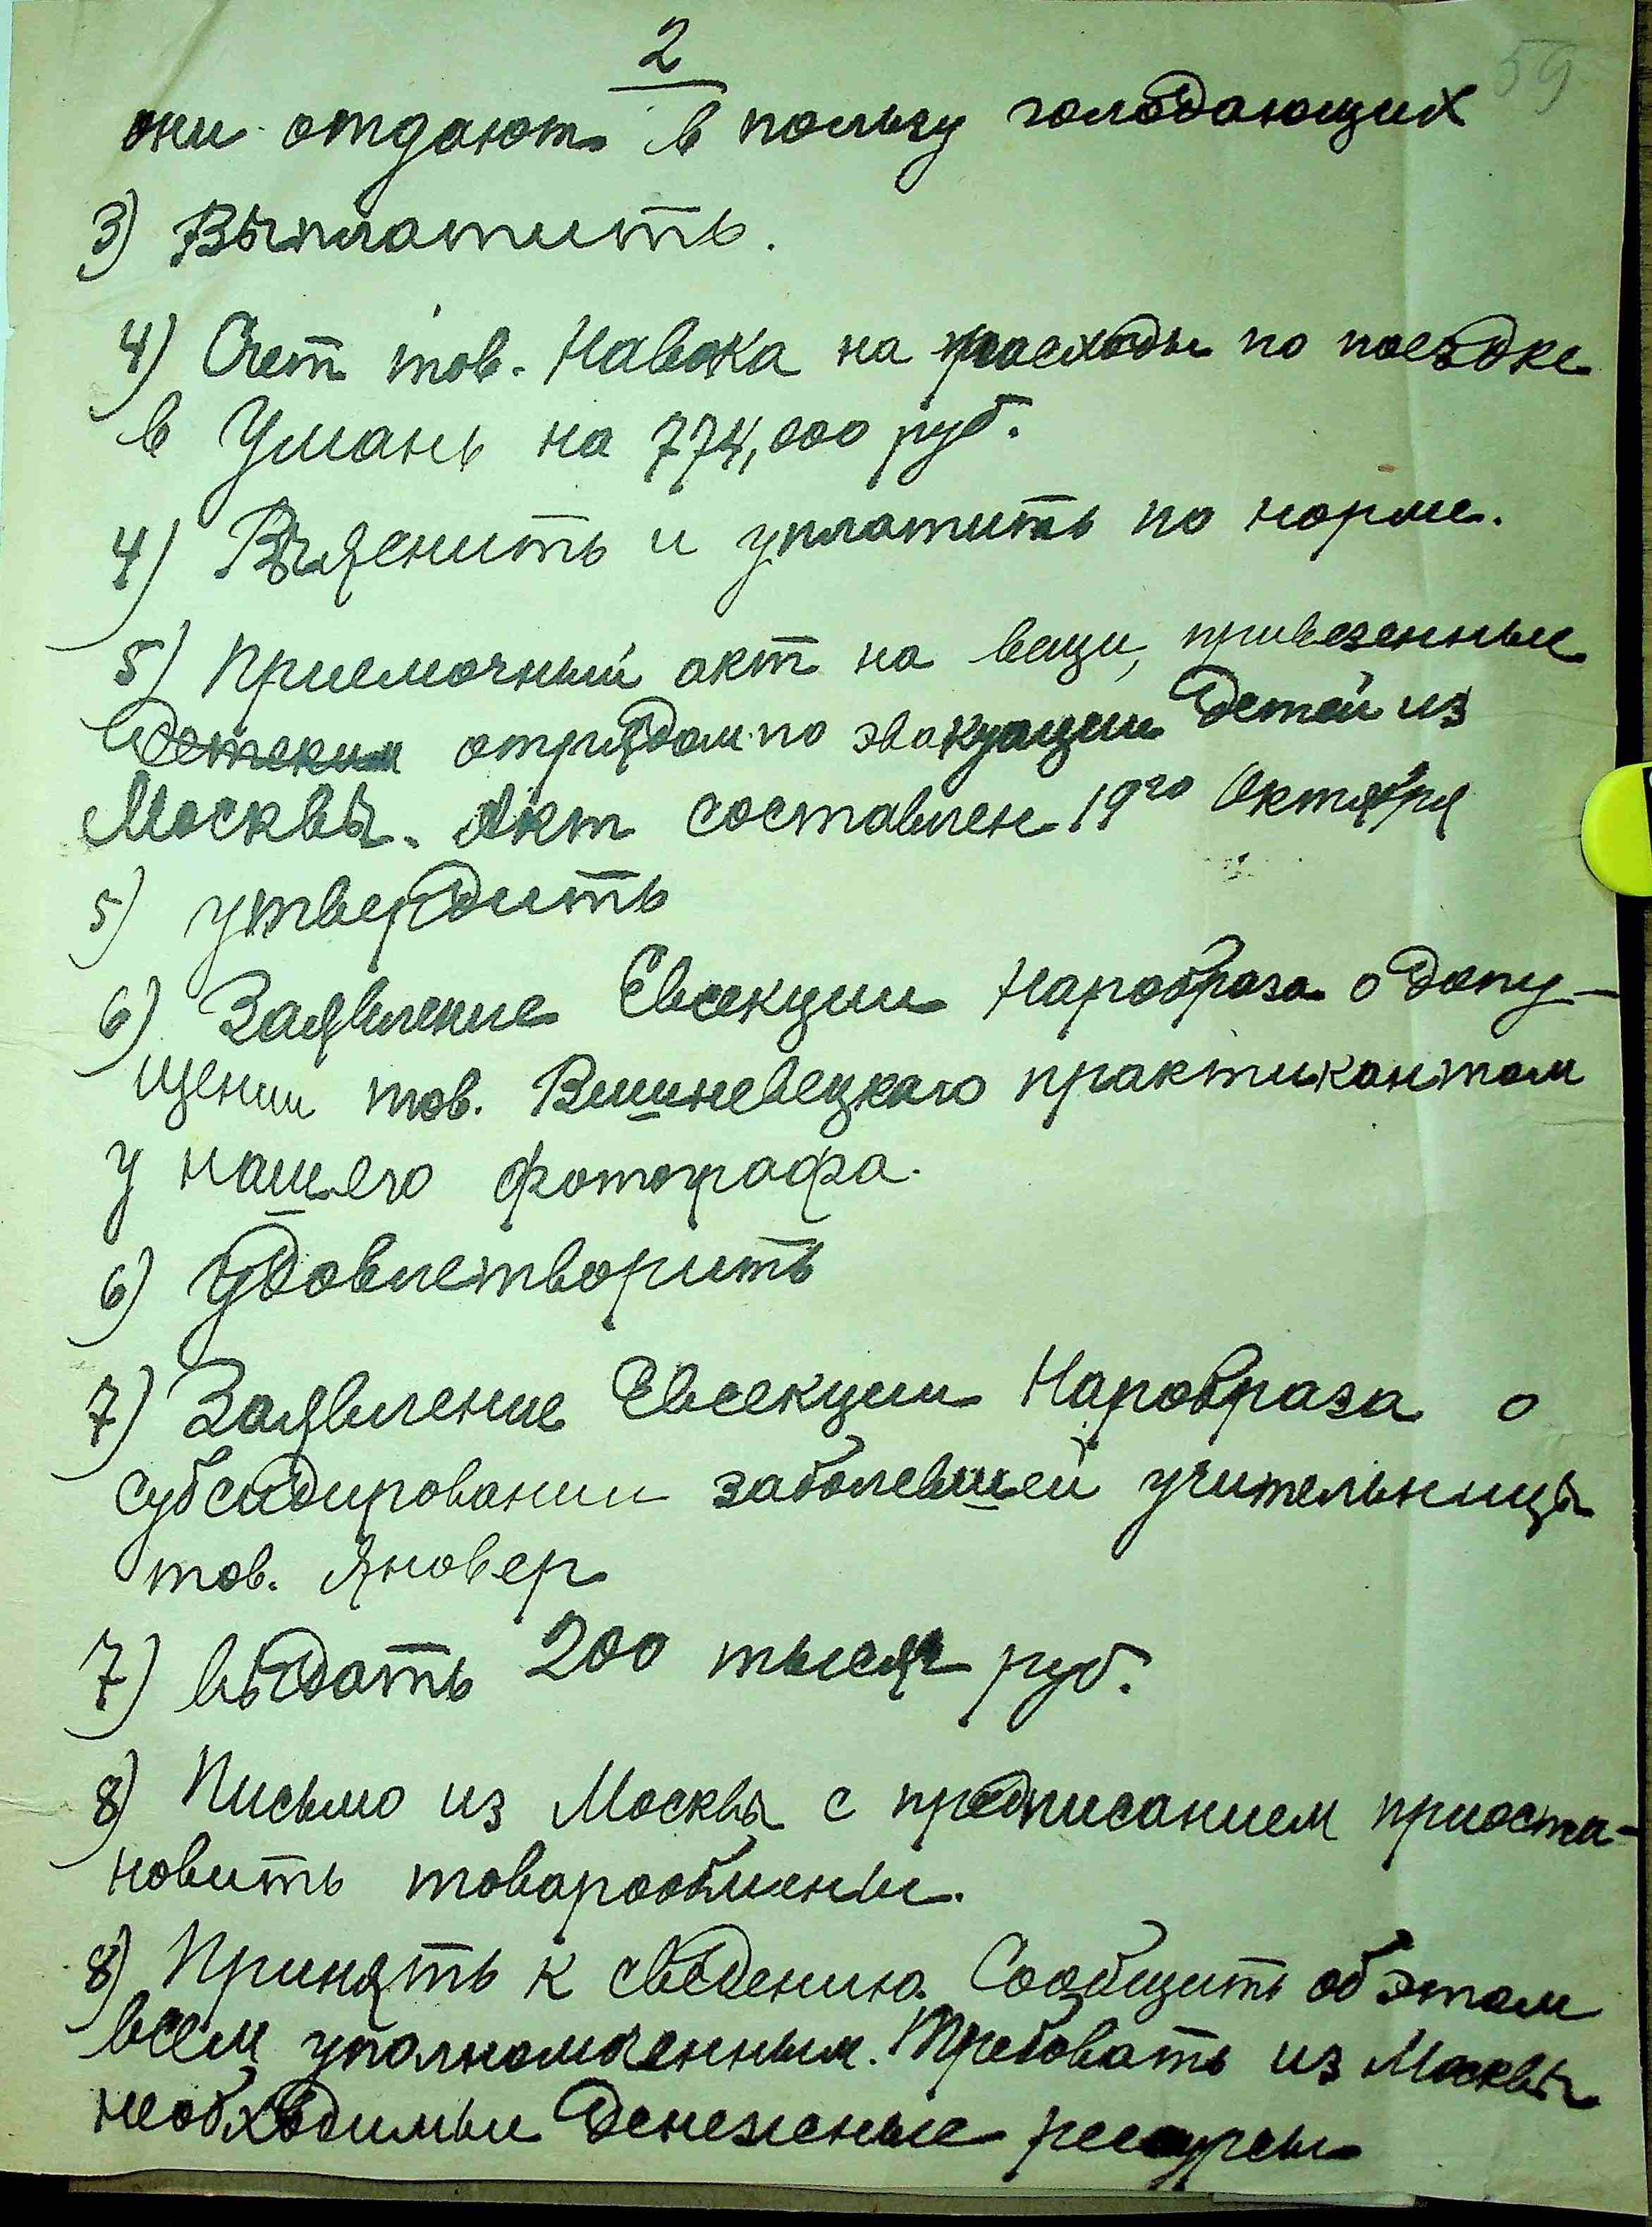 2
59
они отдают в пользу голодающих
3) Выплатить.
4) Счет тов. Навака на расходы по поездке
в Умань на 774,000 руб.
4) Выяснить и уплатить по норме.
5) Приемочный акт на вещи, привезенные
Детским отрядом по эвакуации детей из
Москвы. Акт составлен 19го Октября
5) утвердить
6) Заявление Евсекции Наробраза о допу-
щении тов. Вишневецкаго практикантом
у нашего фотографа.
6) Удовлетворить
7) Заявление Евсекции Наробраза о
субсидировании заболевшей учительницы
тов. Яновер
7) выдать 200 тысяч руб.
8) Письмо из Москвы с предписанием приоста-
новить товарообмены.
8) Принять к сведению. Сообщить об этом
всем уполномоченным. Требовать из Москвы
необходимые денежные ресурсы